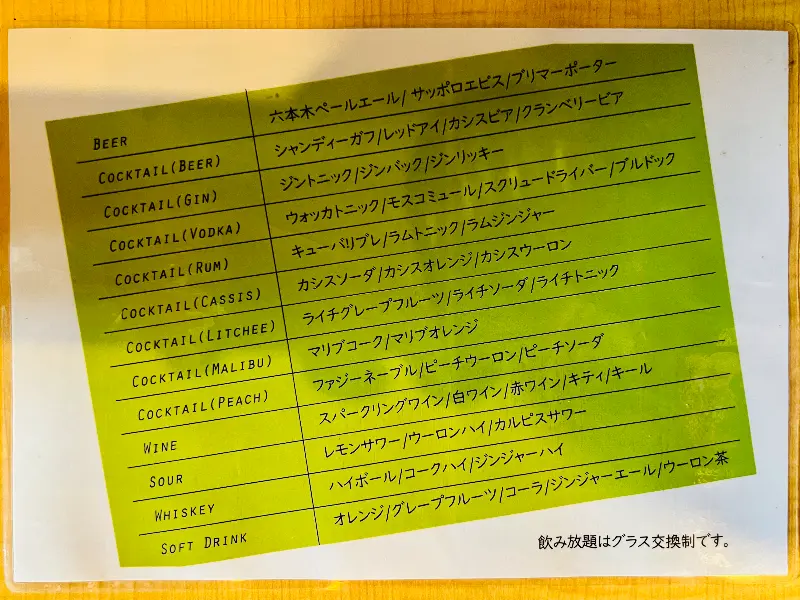 BEER 六本木ペールエール/ サッポロエビス/プリマーポーター
COCKTAIL(BEER) シャンディーガフ/レッドアイ/カシスビア/クランベリービア
COCKTAIL(GIN) ジントニック/ジンバック/ジンリッキー
COCKTAIL(VODKA) ウォッカトニック/モスコミュール/スクリュードライバー/ブルドック
COCKTAIL(RUM) キューバリブレ/ラムトニック/ラムジンジャー
COCKTAIL(CASSIS) カシスソーダ/カシスオレンジ/カシスウーロン
COCKTAIL(LITCHEE) ライチグレープフルーツ/ライチソーダ/ライチトニック
COCKTAIL(MALIBU) マリブコーク/マリブオレンジ
COCKTAIL(PEACH) ファジーネーブル/ピーチウーロン/ピーチソーダ
WINE スパークリングワイン/白ワイン/赤ワイン/キティ/キール
SOUR レモンサワー/ウーロンハイ/カルピスサワー
WHISKEY ハイボール/コークハイ/ジンジャーハイ
SOFT DRINK オレンジ/グレープフルーツ/コーラ/ジンジャーエール/ウーロン茶
飲み放題はグラス交換制です。